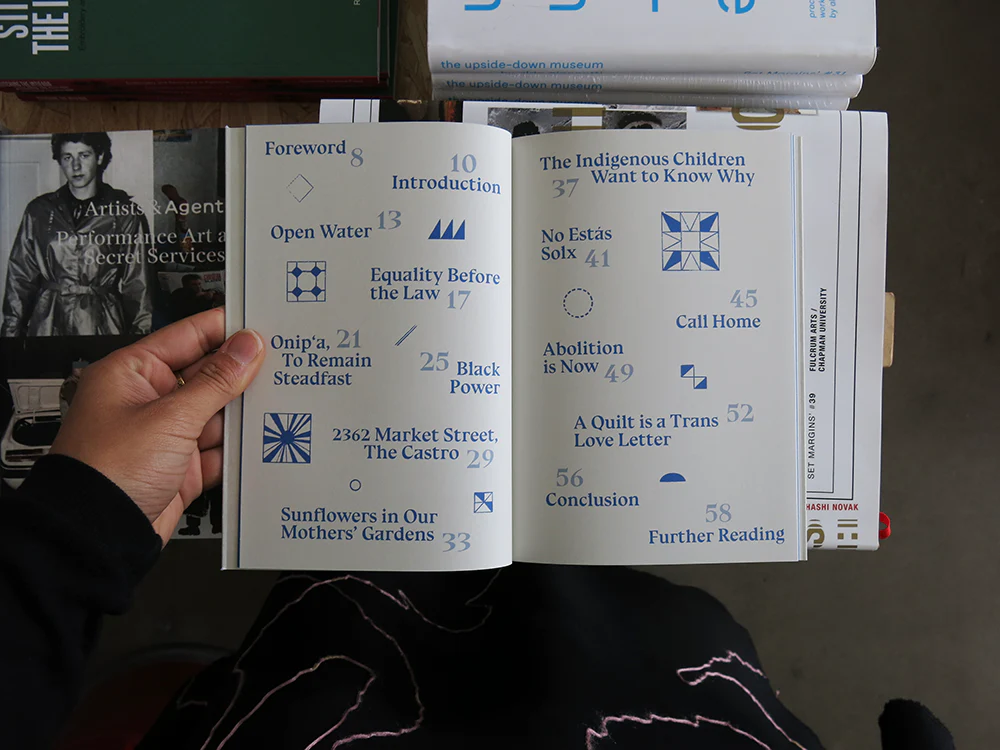 THE
the upside-down museum
the upside-down museum
Artists & Agent
Performance Art a
Secret Services
Foreword 8
10
Introduction
Open Water 13
Equality Before
the Law 17
Onipʻa, 21
To Remain
Steadfast
25 Black
Power
2362 Market Street,
The Castro 29
Sunflowers in Our
Mothers' Gardens 33
The Indigenous Children
37 Want to Know Why
No Estás
Solx 41
45
Call Home
Abolition
is Now 49
A Quilt is a Trans 52
Love Letter
56
Conclusion
58
Further Reading
FULCRUM ARTS /
CHAPMAN UNIVERSITY
SET MARGINS' #39
HASHI NOVAK